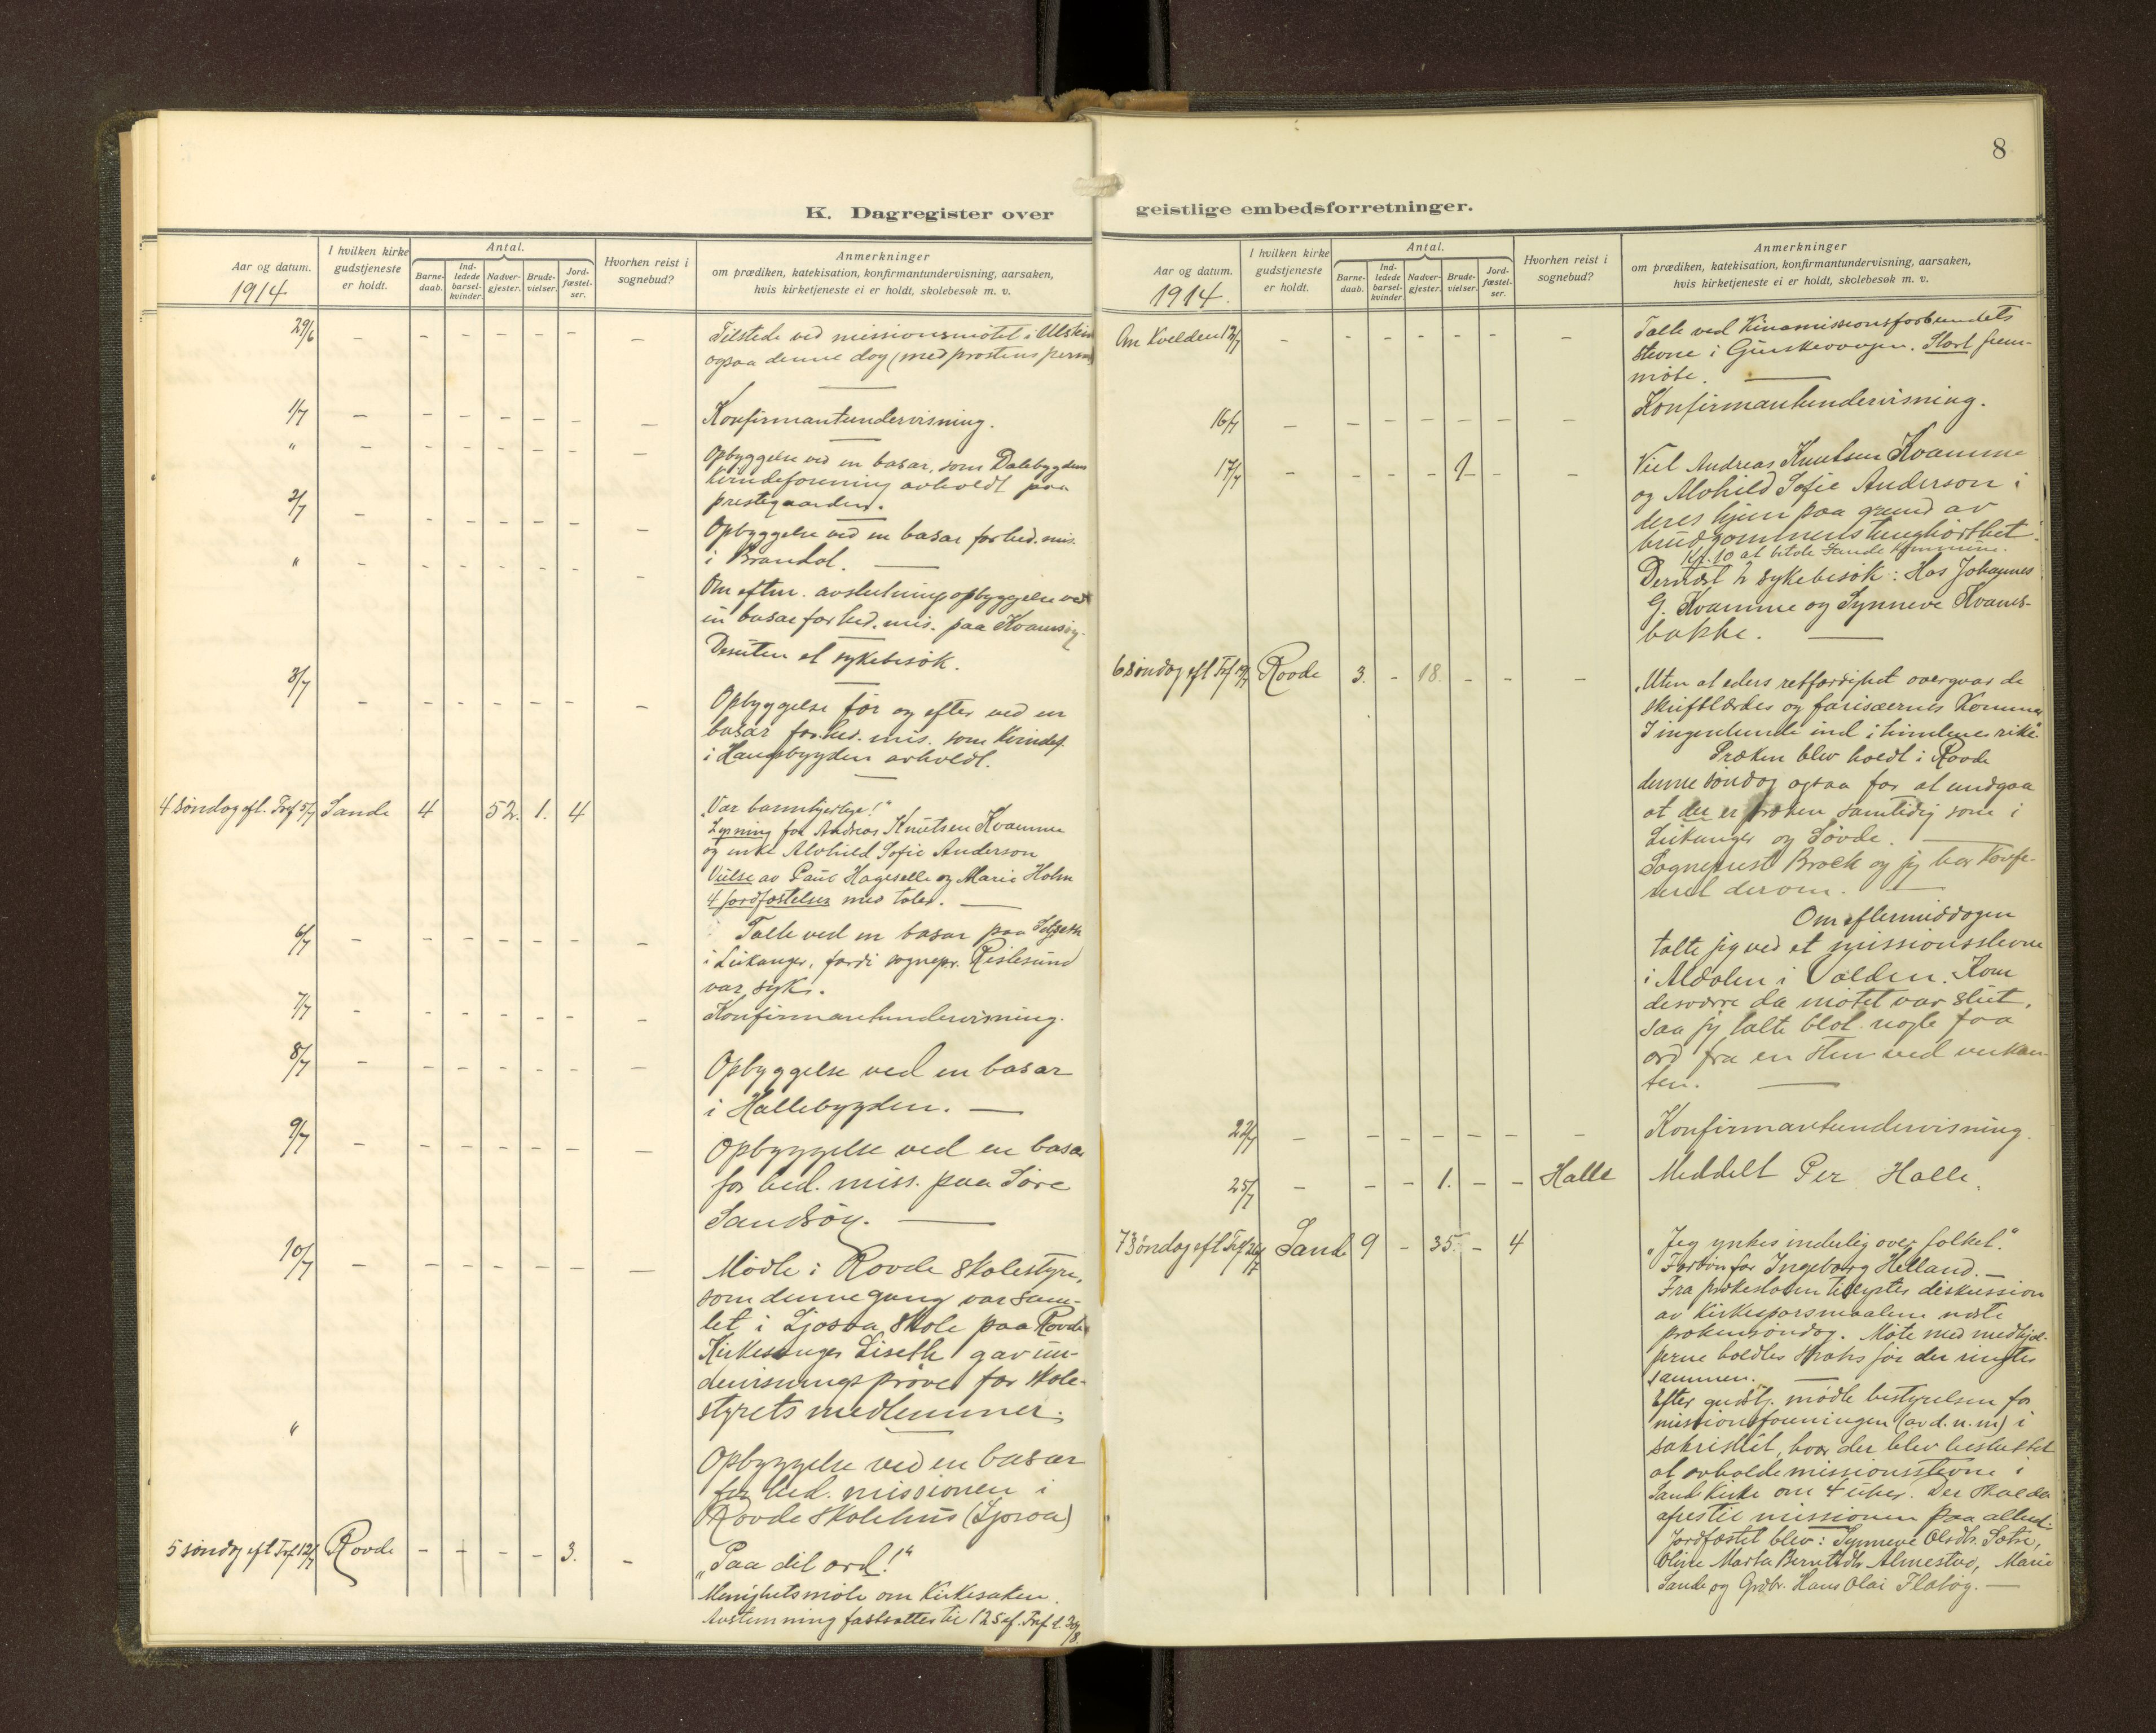 8
K. Dagregister over
Aar og datum.
1914
I hvilken kirke
gudstjeneste
er holdt.
Antal.
Barne-
daab.
Ind-
ledede
barsel-
kvinder.
Nadver-
gjester.
Brude-
vielser.
Jord-
fæstel-
ser.
Hvorhen reist i
sognebud?
Anmerkninger
om prædiken, katekisation, konfirmantundervisning, aarsaken,
hvis kirketjeneste ei er holdt, skolebesøk m. v.
29/6 – – – – – – – Tilstede ved missionsmötet i
ogsaa denne dag (med prostens
1/7 – – – – – – – Konfirmantundervisning.
" – – – – – – – Opbyggelse ved en basar, som Dalebygdens
kvindeforening avholdt paa
prestegaarden.
2/7 – – – – – – – Opbyggelse ved en basar for hed. mis.
i Brandal.
" – – – – – – Om efterm. avslutningsopbyggelse ved
en basar for hed. mis. paa Kvamsöy.
Desuten et sykebesök.
3/7 – – – – – – – Opbyggelse för og efter ved en
basar for hed. mis. som kvindef.
i Haugsbygden avholdt.
4 söndag eft. Tref 5/7 Sande 4 52. 1. 4 "Vær barmhjertige!"
Lysning for Andreas Knutsen Kvamme
og enke Alvhild Sofie Anderson
Vielse av Paul Hageselle og Marie Holm
4 jordfæstelser med taler.
6/7 – – – – – – – Talte ved en basar paa
i Leikanger, fordi sognepr. Rislesund
var syk.
7/7 – – – – – – – Konfirmantundervisning.
8/7 – – – – – – – Opbyggelse ved en basar
i Hallebygden.
9/7 – – – – – – – Opbyggelse ved en basar
for hed. miss. paa Söre
Sandsöy.
10/7 – – – – – – – Mödte i Rovde skolestyre,
som denne gang var sam-
let i Ljosaa skole paa Rovde
Kirkesanger Liseth gav un-
dervisningspröver for skole-
styrets medlemmer.
" Opbyggelse ved en basar
for hed. missionen i
Rovde skolehus (Ljosaa)
5 söndag eft Tref. 12/7 Rovde – – – – 3. – "Paa dit ord!"
Menighetsmöte om kirkesaken.
Avstemning fastsattes til 12 S. ef. Tref. d. 30/8
geistlige embedsforretninger.
Aar og datum.
1914.
I hvilken kirke
gudstjeneste
er holdt.
Antal.
Barne-
daab.
Ind-
ledede
barsel-
kvinder.
Nadver-
gjester.
Brude-
vielser.
Jord-
fæstel-
ser.
Hvorhen reist i
sognebud?
Anmerkninger
om prædiken, katekisation, konfirmantundervisning, aarsaken,
hvis kirketjeneste ei er holdt, skolebesøk m. v.
Om Kvelden 12/7 – – – – – – – Talte ved Kinamissionsforbundets
stevne i Gurskevaagen. Stort frem-
möte.
16/7 – – – – – – – Konfirmantundervisning.
17/7 – – – – 1 – – Viet Andreas Knutsen Kvamme
og Alvhild Sofie Anderson i
deres hjem paa grund av
brudgommens tunghörthet.
Kr. 10 at betale Sande kommune.
Dernæst 2 sykebesök: Hos Johannes
G. Kvamme og Synneve Kvams-
bakke.
6 söndag eft Tref 19/7 Rovde 3. – 18. – – – "Uten at eders retfærdighet overgaar de
skriftlærdes og farisæernes kommer
I ingenlunde ind i himlenes rike."
Præken blev holdt i Rovde
denne söndag ogsaa for at undgaa
at der er præken samtidig som i
Leikanger og Sövde.
Sogneprest Brock og jeg har konfe-
rert derom.
Om eftermiddagen
talte jeg ved et missionsstevne
i Aldalen i Volden. Kom
desværre da mötet var slut,
saa jeg talte blot nogle faa
ord fra en sten ved veikan-
ten.
22/7 – – – – – – – Konfirmantundervisning.
25/7 – – – 1. – – Halle Meddelt Per Halle.
7 söndag eft Tref 26/7 Sande 9 – 35. – 4 "Jeg ynkes inderlig over folket."
Forbön for Ingeborg Helland.
Fra prækestolen tillystes diskussion
av kirkespörsmaalene næste
prækensöndag. Möte med medhjæl-
perne holdtes straks för der ringtes
sammen.
Efter gudstj. mödte bestyrelsen for
missionsforeningen (av d. n. m) i
sakristiet, hvor der blev besluttet
at avholde missionsstevne i
Sande kirke om 4 uker. Der skal da
ofres til missionen paa alteret.
Jordfæstet blev: Synneve Olsdtr. Sætre,
Oline Marta Berntsdtr Almestad, Marie
Sande og Grdbr. Hans Olai Flatöy.